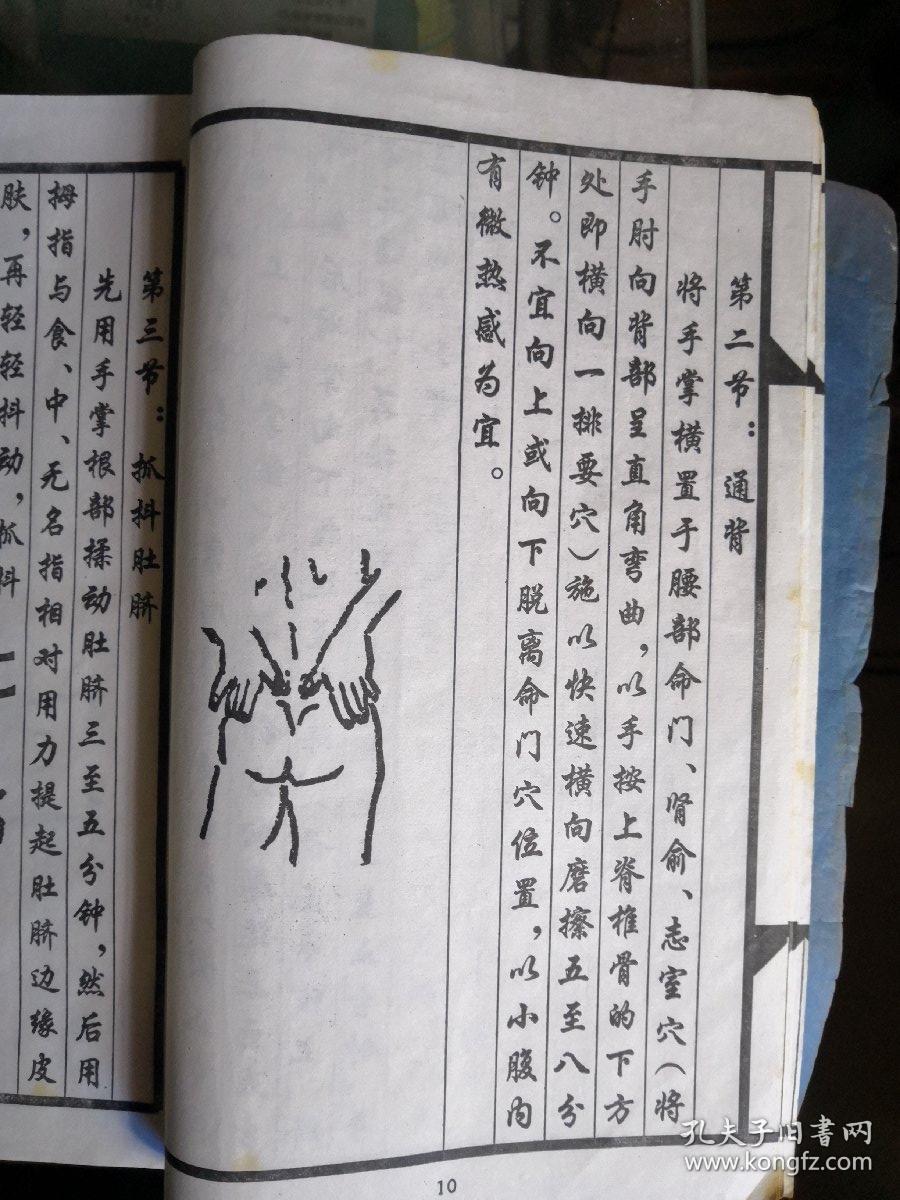 第二节：通背
将手掌横置于腰部命门、肾俞、志室穴（将
手肘向背部呈直角弯曲，以手按上脊椎骨的下方
处即横向一排要穴）施以快速横向磨擦五至八分
钟。不宜向上或向下脱离命门穴位置，以小腹内
有微热感为宜。
10
第三节：抓抖肚脐
先用手掌根部揉动肚脐三至五分钟，然后用
拇指与食、中、无名指相对用力提起肚脐边缘皮
肤，再轻轻抖动，抓抖
孔夫子旧书网
www.kongfz.com